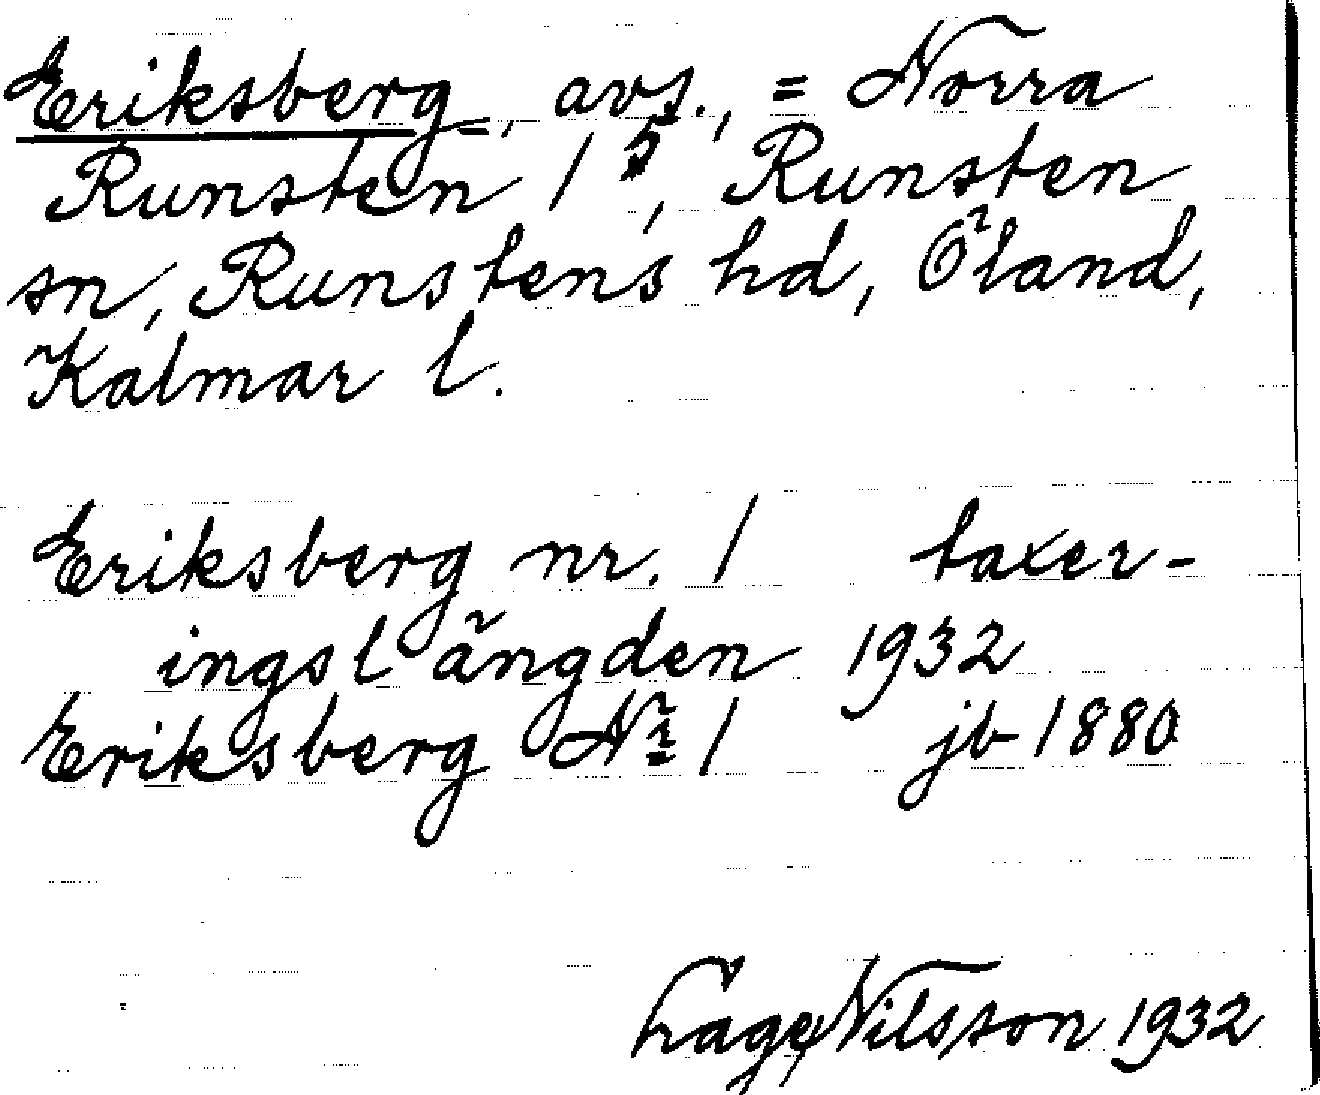 Eriksberg, avs., = Norra
Runsten 1⁵, Runsten
sn, Runstens hd, Öland,
Kalmar l.
Eriksberg nr. 1 taxer-
ingslängden 1932
Eriksberg Nr 1 jb 1880
Hage Nilsson 1932